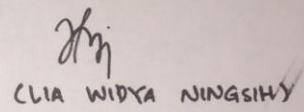 (LIA WIDYA NINGSIH)